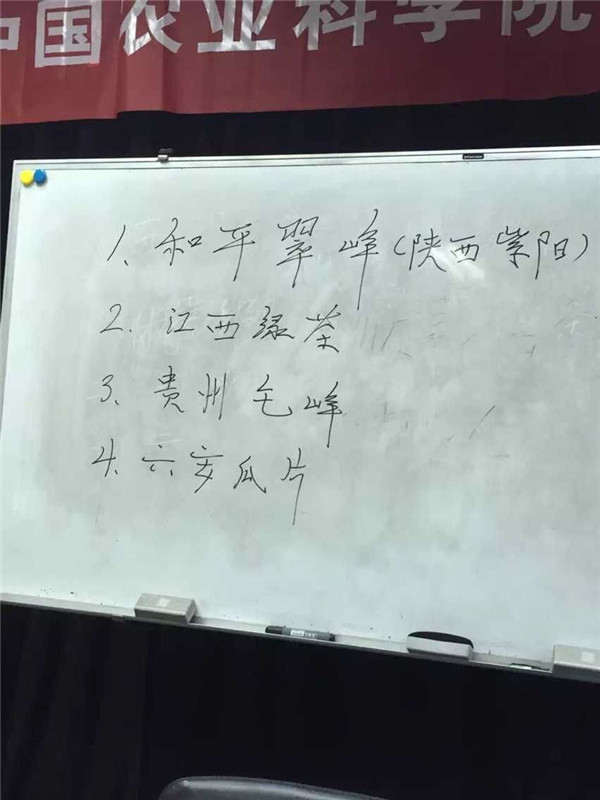 中国农业科学院
1、和平翠峰(陕西紫阳)
2、江西绿茶
3、贵州毛峰
4、六安瓜片